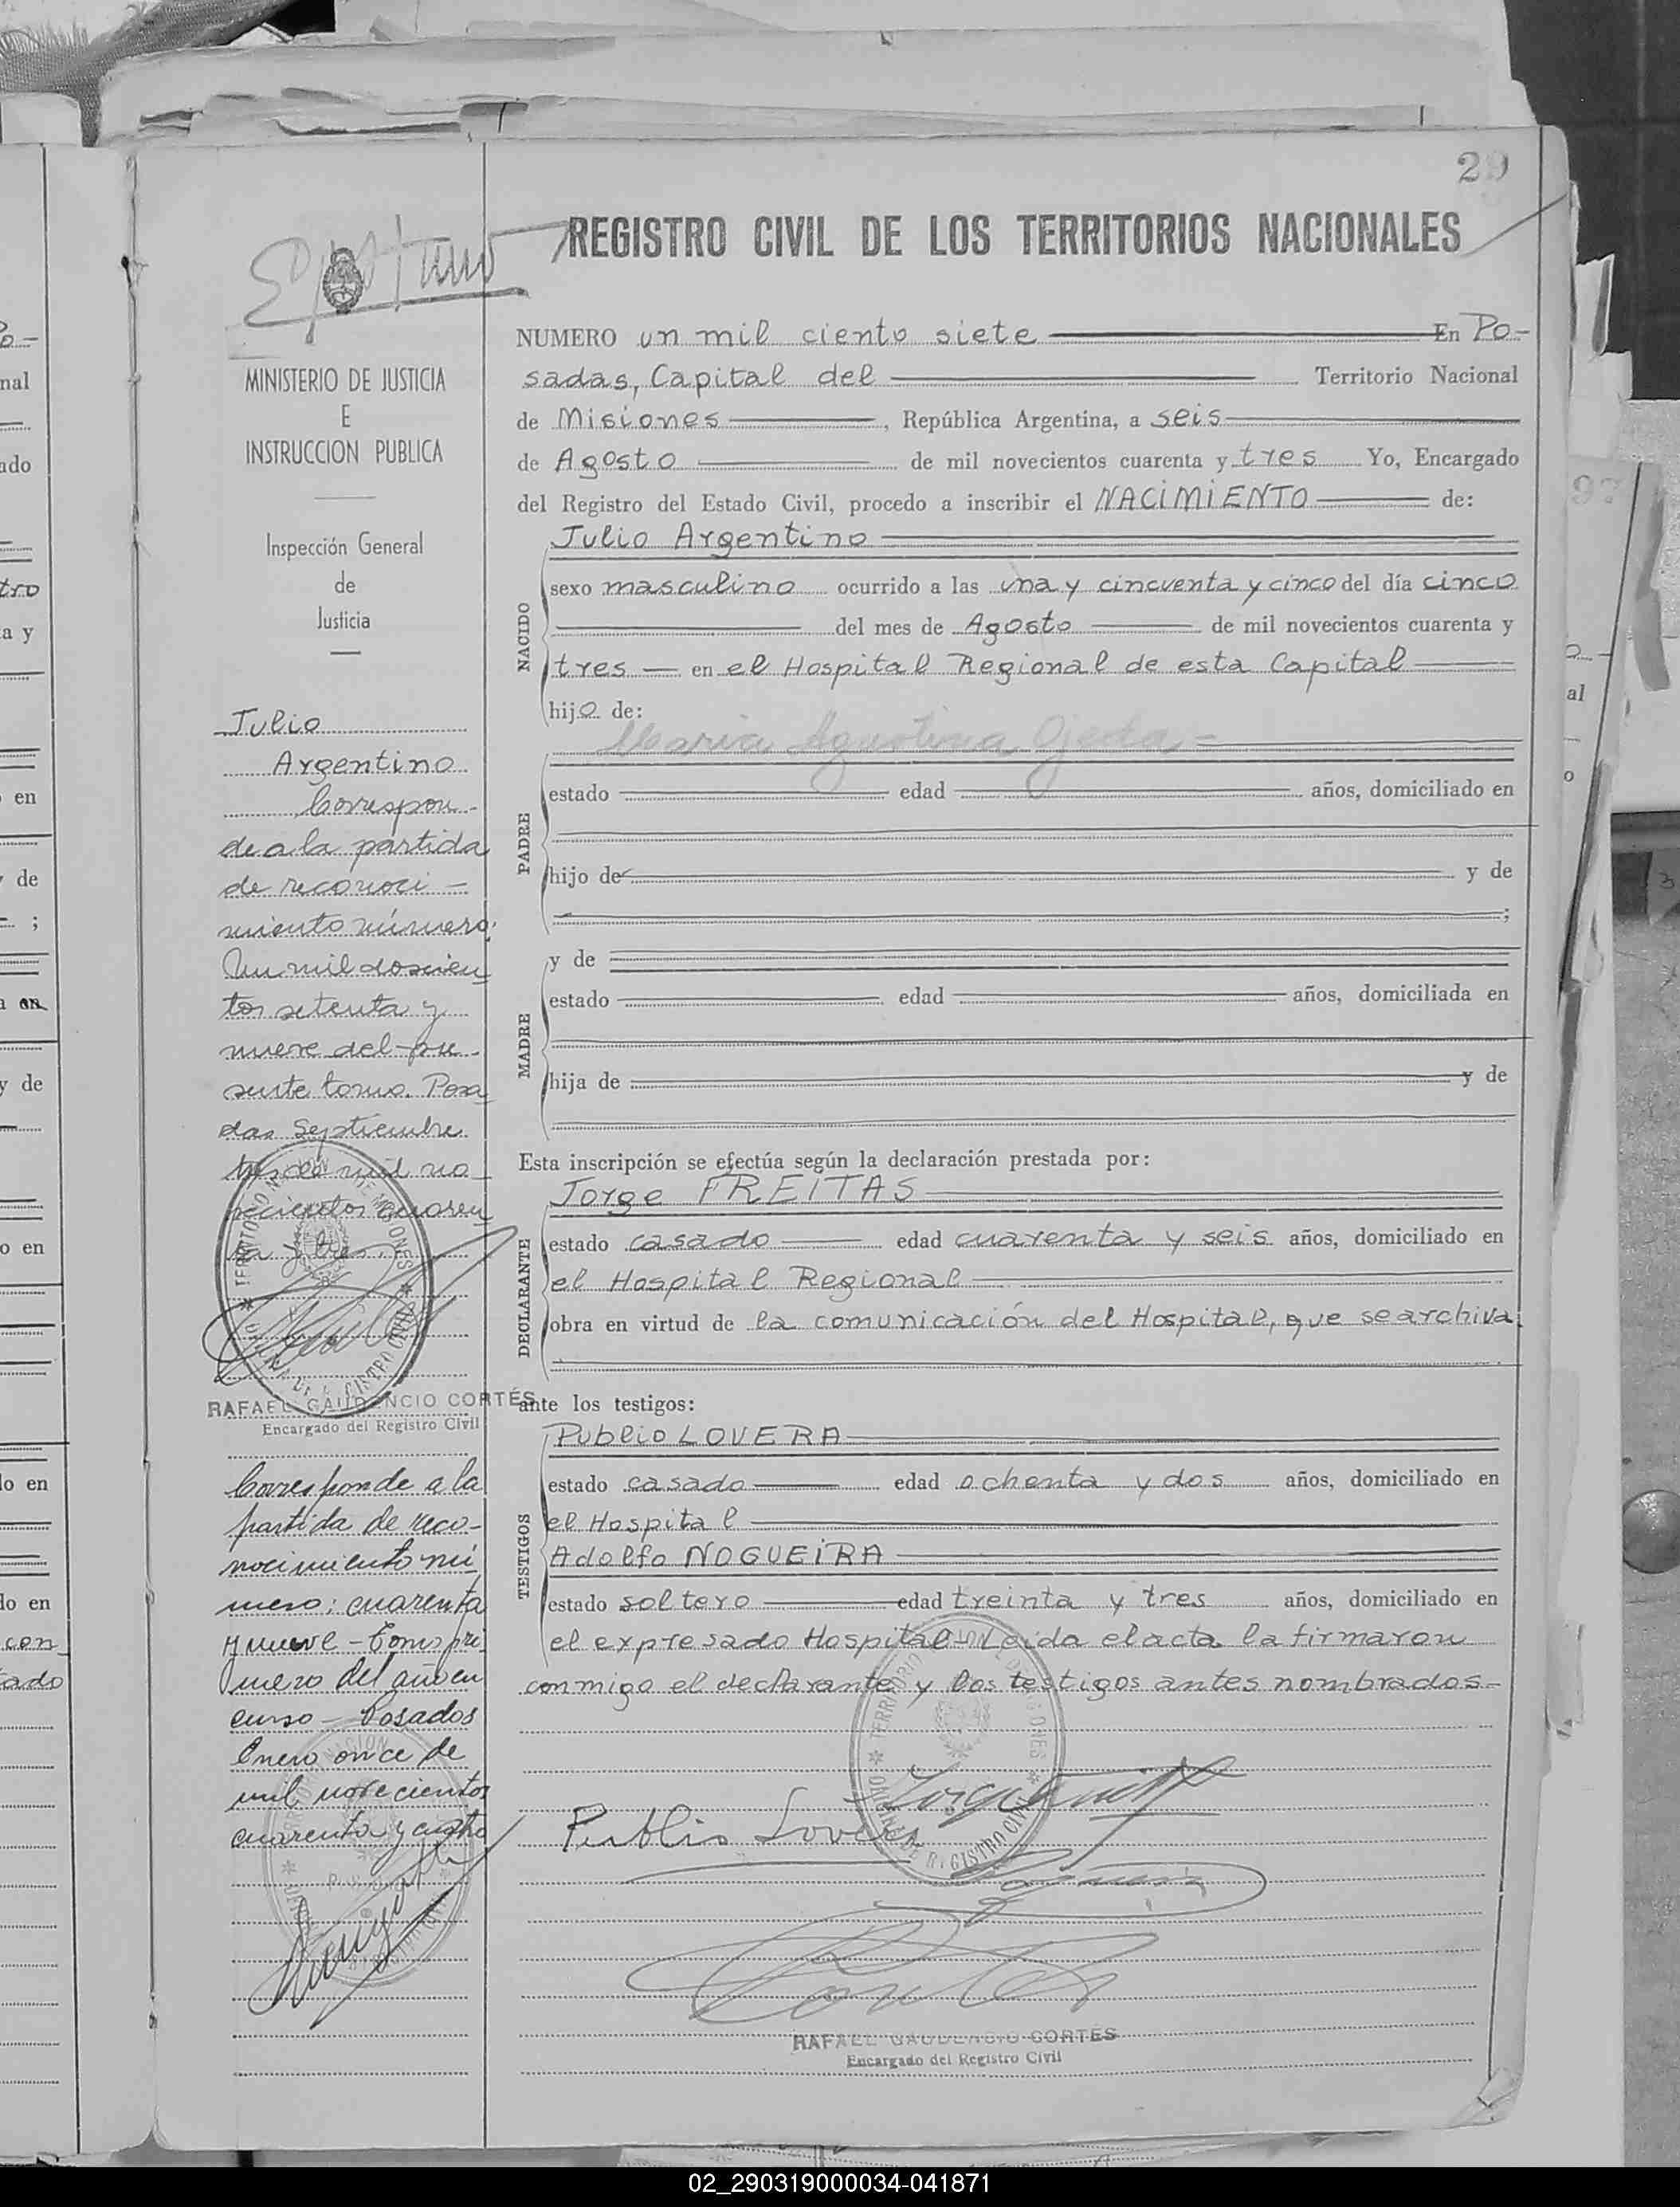 29
REGISTRO CIVIL DE LOS TERRITORIOS NACIONALES
MINISTERIO DE JUSTICIA
E
INSTRUCCION PUBLICA
Inspección General
de
Justicia
Julio
Argentino
Correspon-
de a la partida
de reconoci-
miento número:
Un mil doscien
tos setenta y
nueve del pre-
sente tomo. Posa
das Septiembre
de mil no
vecientos cuaren
ta y tres.
RAFAEL GAUDENCIO CORTÉS
Encargado del Registro Civil
Corresponde a la
partida de reco-
nocimiento nú
mero: cuarenta
y nueve - Tomo pri
mero del año en
curso - Posadas
Enero once de
mil novecientos
cuarenta y cuatro
NUMERO un mil ciento siete En Po-
sadas, Capital del Territorio Nacional
de Misiones, República Argentina, a seis
de Agosto de mil novecientos cuarenta y tres Yo, Encargado
del Registro del Estado Civil, procedo a inscribir el NACIMIENTO de:
NACIDO
Julio Argentino
sexo masculino ocurrido a las una y cincuenta y cinco del día cinco
del mes de Agosto de mil novecientos cuarenta y
tres en el Hospital Regional de esta Capital
hijo de:
PADRE
Maria Agustina Ojeda -
estado edad años, domiciliado en
hijo de y de
;
MADRE
y de
estado edad años, domiciliada en
hija de y de
Esta inscripción se efectúa según la declaración prestada por:
DECLARANTE
Jorge FREITAS
estado casado edad cuarenta y seis años, domiciliado en
el Hospital Regional
obra en virtud de la comunicación del Hospital, que se archiva.
ante los testigos:
TESTIGOS
Publio LOVERA
estado casado edad ochenta y dos años, domiciliado en
el Hospital
Adolfo NOGUEIRA
estado soltero edad treinta y tres años, domiciliado en
el expresado Hospital.- Leida el acta la firmaron
conmigo el declarante y los testigos antes nombrados-
Publio Lovera
RAFAEL GAUDENCIO CORTÉS
Encargado del Registro Civil
02_290319000034-041871